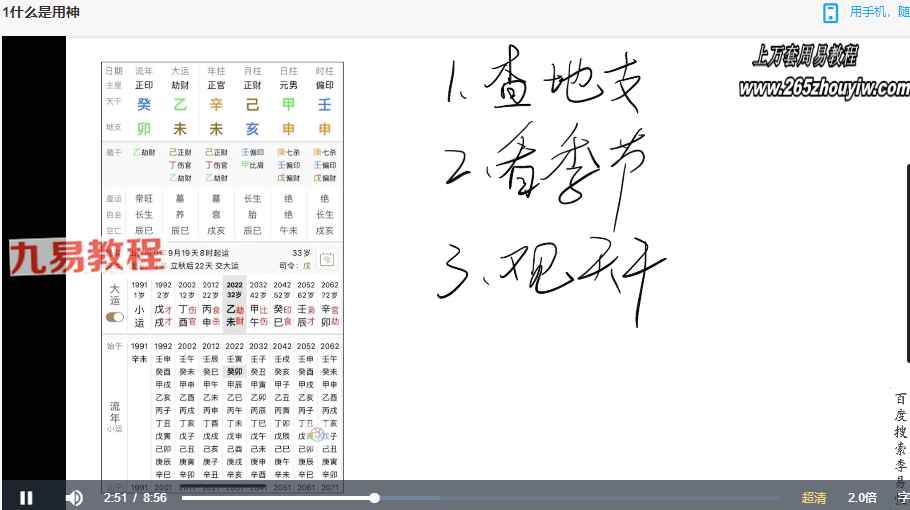 1什么是用神
用手机，随
上万套周易教程
www.265zhouyiw.com
1、查地支
2、看季节
3、观天干
日期 流年 大运 年柱 月柱 日柱 时柱
主星 正印 劫财 正官 正财 元男 偏印
天干 癸 乙 辛 己 甲 壬
地支 卯 未 未 亥 申 申
藏干 乙劫财 己正财 己正财 壬偏印 庚七杀 庚七杀
丁伤官 丁伤官 甲比肩 壬偏印 壬偏印
乙劫财 乙劫财 戊偏财 戊偏财
星运 帝旺 墓 墓 长生 绝 绝
自坐 长生 养 衰 胎 绝 长生
空亡 辰巳 辰巳 戌亥 辰巳 午未 戌亥
九易教程
9月19天8时起运 33岁
立秋后22天 交大运 司令：戊
大运
1991 1992 2002 2012 2022 2032 2042 2052 2062
1岁 2岁 12岁 22岁 32岁 42岁 52岁 62岁 72岁
小 戊才 丁伤 丙食 乙劫 甲比 癸印 壬枭 辛官
运 戌才 酉官 申杀 未财 午伤 巳食 辰才 卯劫
始于 1991 1992 2002 2012 2022 2032 2042 2052 2062
流年
小运
辛未 壬申 壬午 壬辰 壬寅 壬子 壬戌 壬申 壬午
癸酉 癸未 癸巳 癸卯 癸丑 癸亥 癸酉 癸未
甲戌 甲申 甲午 甲辰 甲寅 甲子 甲戌 甲申
乙亥 乙酉 乙未 乙巳 乙卯 乙丑 乙亥 乙酉
丙子 丙戌 丙申 丙午 丙辰 丙寅 丙子 丙戌
丁丑 丁亥 丁酉 丁未 丁巳 丁卯 丁丑 丁亥
戊寅 戊子 戊戌 戊申 戊午 戊辰 戊 戊子
己卯 己丑 己亥 己酉 己未 己巳 己卯 己丑
庚辰 庚寅 庚子 庚戌 庚申 庚午 庚辰 庚寅
辛巳 辛卯 辛丑 辛亥 辛酉 辛未 辛巳 辛卯
百度搜索李易
2:51 / 8:56
超清 2.0倍 字